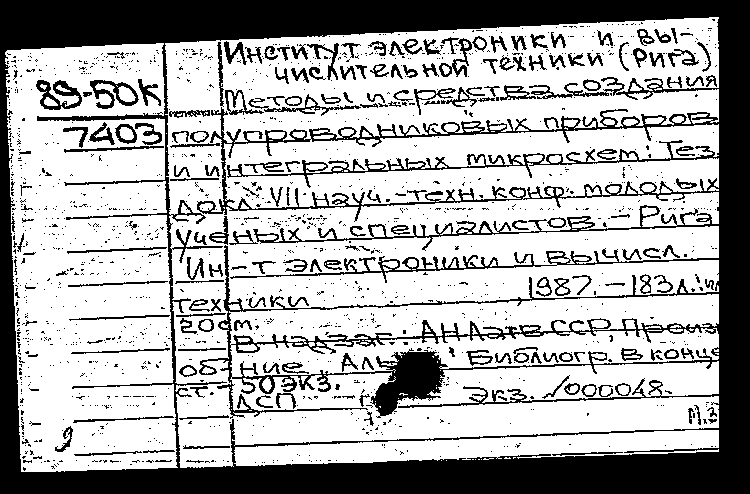 Институт электроники и вы-
числительной техники (Рига)
89-50К
Методы и средства создания
7403 полупроводниковых приборов
и интегральных микросхем: Тез.
докл. VII науч.-техн. конф. молодых
ученых и специалистов. – Рига
Ин-т электроники и вычисл.
техники , 1987. – 183л.: ил
20 см.
В надзаг.: АН Латв ССР, Произ
об ние „Аль " Библиогр. в конце
ст. – 50 экз.
ДСП экз. √000048.
М.З
9